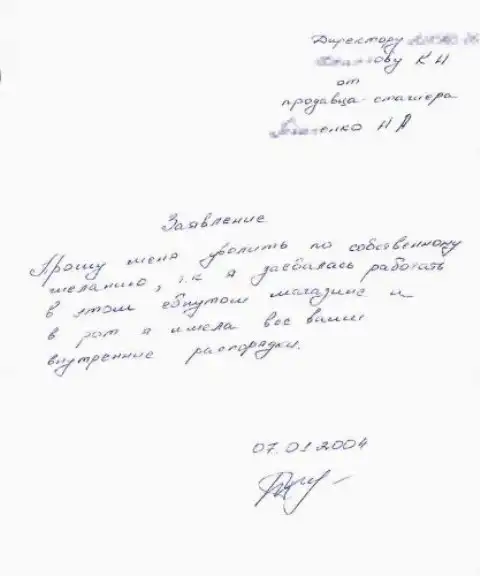 Директору
К Н
от
продавца-стажера
Н А
Заявление
Прошу меня уволить по собственному
желанию, т.к я заебалась работать
в этом ебнутом магазине и
в рот я имела все ваши
внутренние распорядки.
07.01.2004